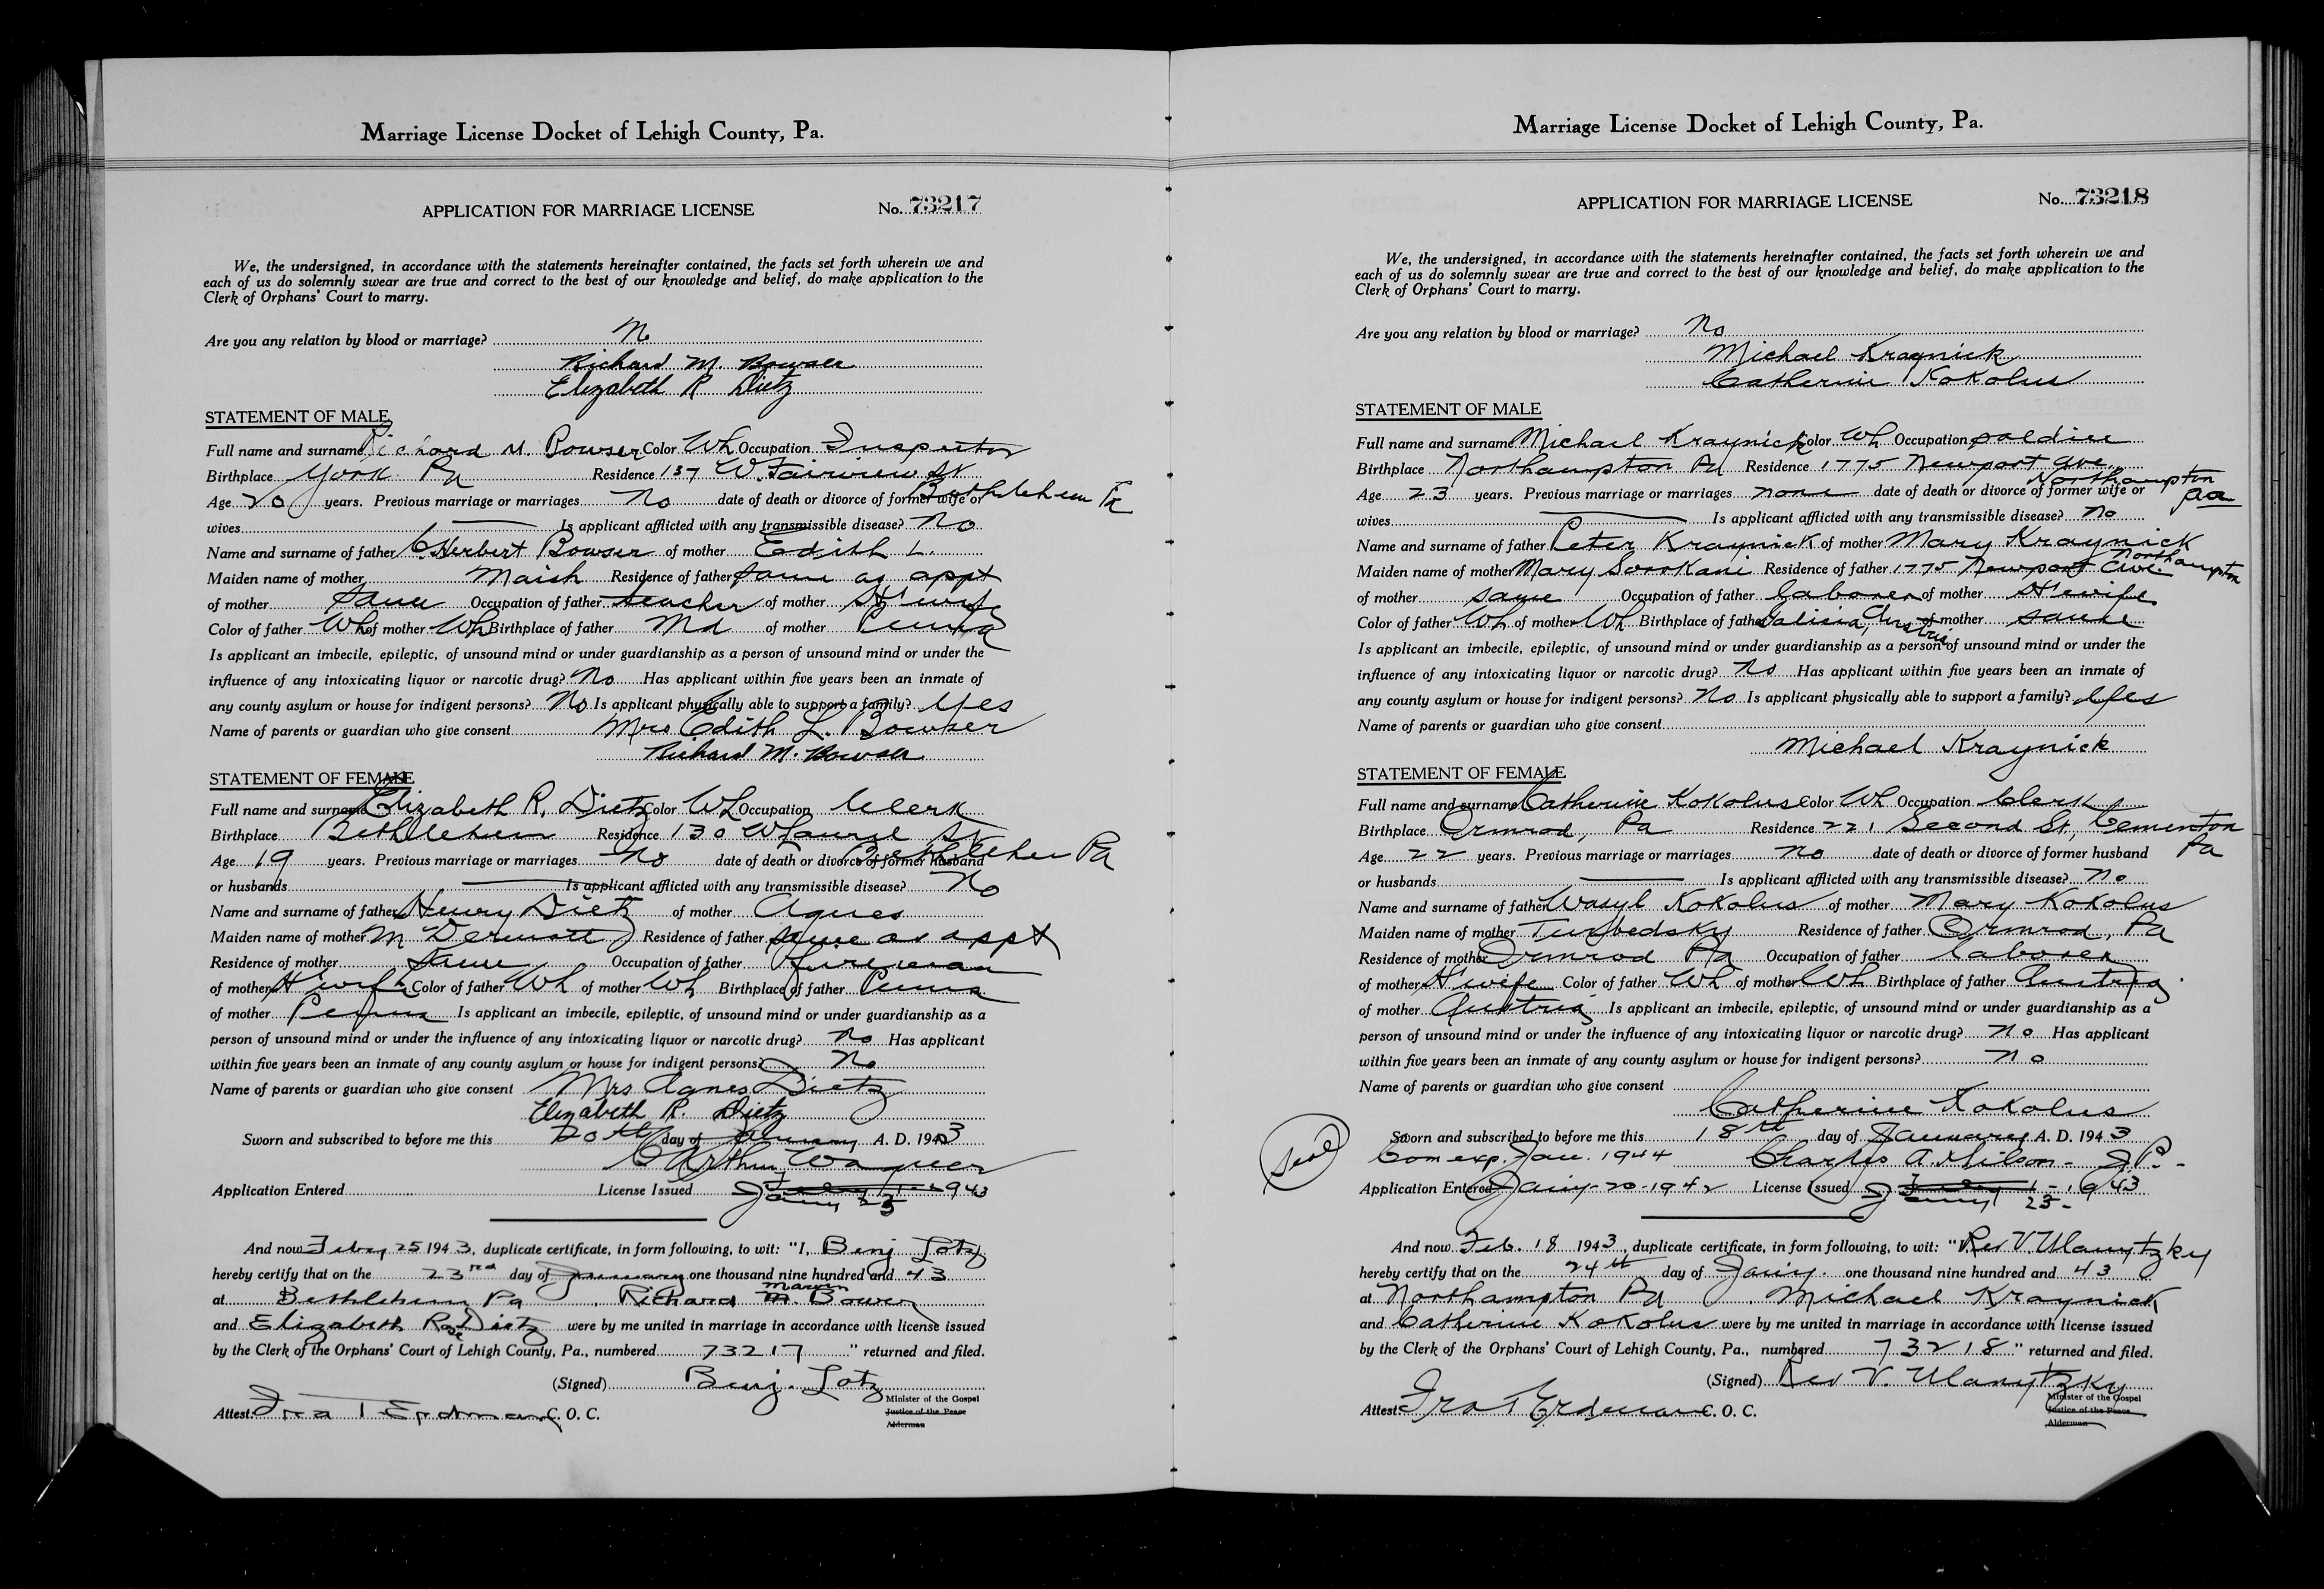 Marriage License Docket of Lehigh County, Pa.
APPLICATION FOR MARRIAGE LICENSE No. 73217
We, the undersigned, in accordance with the statements hereinafter contained, the facts set forth wherein we and
each of us do solemnly swear are true and correct to the best of our knowledge and belief, do make application to the
Clerk of Orphans' Court to marry.
Are you any relation by blood or marriage? No
Richard M. Bowser
Elizabeth R Dietz
STATEMENT OF MALE
Full name and surname Richard M. Bowser Color Wh Occupation Inspector
Birthplace York Pa Residence 137 W. Fairview St
Bethlehem Pa
Age 20 years. Previous marriage or marriages No date of death or divorce of former wife or
wives Is applicant afflicted with any transmissible disease? No
Name and surname of father C. Herbert Bowser of mother Edith L.
Maiden name of mother Maish Residence of father same as appt
of mother Same Occupation of father teacher of mother H'wife
Color of father Wh of mother Wh Birthplace of father Md of mother Penna
Is applicant an imbecile, epileptic, of unsound mind or under guardianship as a person of unsound mind or under the
influence of any intoxicating liquor or narcotic drug? No Has applicant within five years been an inmate of
any county asylum or house for indigent persons? No Is applicant physically able to support a family? Yes
Name of parents or guardian who give consent Mrs Edith L. Bowser
Richard M. Bowser
STATEMENT OF FEMALE
Full name and surname Elizabeth R. Dietz Color Wh Occupation Clerk
Birthplace Bethlehem Residence 130 W Laurel St
Bethlehem Pa
Age 19 years. Previous marriage or marriages No date of death or divorce of former husband
or husbands Is applicant afflicted with any transmissible disease? No
Name and surname of father Henry Dietz of mother Agnes
Maiden name of mother McDermott Residence of father same as appt
Residence of mother Same Occupation of father Foreman
of mother H'wife Color of father Wh of mother Wh Birthplace of father Penna
of mother Penna Is applicant an imbecile, epileptic, of unsound mind or under guardianship as a
person of unsound mind or under the influence of any intoxicating liquor or narcotic drug? No Has applicant
within five years been an inmate of any county asylum or house for indigent persons? No
Name of parents or guardian who give consent Mrs Agnes Dietz
Elizabeth R. Dietz
Sworn and subscribed to before me this 20th day of January A. D. 1943
C Arthur Wagner
Application Entered License Issued Jany 23 1943
And now Feby 25 1943, duplicate certificate, in form following, to wit: "I, Benj Lotz
hereby certify that on the 23rd day of January one thousand nine hundred and 43
at Bethlehem Pa, Richard M. Bowser
and Elizabeth Rose Dietz were by me united in marriage in accordance with license issued
by the Clerk of the Orphans' Court of Lehigh County, Pa., numbered 73217 " returned and filed.
(Signed) Benj. Lotz
Minister of the Gospel
Justice of the Peace
Alderman
Attest Ira T Erdman C. O. C.
Marriage License Docket of Lehigh County, Pa.
APPLICATION FOR MARRIAGE LICENSE No. 73218
We, the undersigned, in accordance with the statements hereinafter contained, the facts set forth wherein we and
each of us do solemnly swear are true and correct to the best of our knowledge and belief, do make application to the
Clerk of Orphans' Court to marry.
Are you any relation by blood or marriage? No
Michael Kraynick
Catherine Kokolus
STATEMENT OF MALE
Full name and surname Michael Kraynick Color Wh Occupation soldier
Birthplace Northampton Pa Residence 1775 Newport Ave.
Northampton Pa
Age 23 years. Previous marriage or marriages none date of death or divorce of former wife or
wives Is applicant afflicted with any transmissible disease? No
Name and surname of father Peter Kraynick of mother Mary Kraynick
Maiden name of mother Mary Sorokani Residence of father 1775 Newport Ave. Northampton
of mother same Occupation of father laborer of mother H'wife
Color of father Wh of mother Wh Birthplace of father Galicia, Austria of mother same
Is applicant an imbecile, epileptic, of unsound mind or under guardianship as a person of unsound mind or under the
influence of any intoxicating liquor or narcotic drug? No Has applicant within five years been an inmate of
any county asylum or house for indigent persons? No Is applicant physically able to support a family? Yes
Name of parents or guardian who give consent
Michael Kraynick
STATEMENT OF FEMALE
Full name and surname Catherine Kokolus Color Wh Occupation Clerk
Birthplace Ormrod, Pa Residence 221 Second St., Cementon
Pa
Age 22 years. Previous marriage or marriages no date of death or divorce of former husband
or husbands Is applicant afflicted with any transmissible disease? No
Name and surname of father Wasyl Kokolus of mother Mary Kokolus
Maiden name of mother Turbedsky Residence of father Ormrod, Pa
Residence of mother Ormrod Pa Occupation of father Laborer
of mother H'wife Color of father Wh of mother Wh Birthplace of father Austria
of mother Austria Is applicant an imbecile, epileptic, of unsound mind or under guardianship as a
person of unsound mind or under the influence of any intoxicating liquor or narcotic drug? no Has applicant
within five years been an inmate of any county asylum or house for indigent persons? no
Name of parents or guardian who give consent
Catherine Kokolus
Seal
Sworn and subscribed to before me this 18th day of January A. D. 1943
Com exp. Jan. 1944 Charles A. J.P.
Application Entered Jany-20-1942 License Issued Jany 23-1943
And now Feb. 18 1943, duplicate certificate, in form following, to wit: "Rev V. Ulanytzky
hereby certify that on the 24th day of Jany. one thousand nine hundred and 43
at Northampton Pa, Michael Kraynick
and Catherine Kokolus were by me united in marriage in accordance with license issued
by the Clerk of the Orphans' Court of Lehigh County, Pa., numbered 73218 " returned and filed.
(Signed) Rev V. Ulanytzky
Minister of the Gospel
Justice of the Peace
Alderman
Attest Ira T Erdman C. O. C.